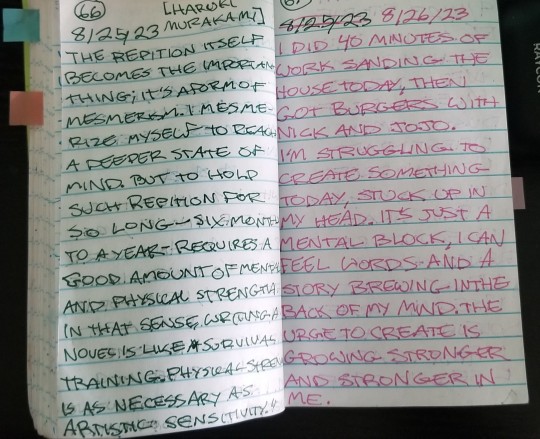 66
[HARUKI
MURAKAMI]
8/25/23
THE REPITION ITSELF
BECOMES THE IMPORTAN
THING; IT'S A FORM OF
MESMERISM. I MESME-
RIZE MYSELF TO REACH
A DEEPER STATE OF
MIND. BUT TO HOLD
SUCH REPITION FOR
SO LONG - SIX MONTHS
TO A YEAR - REQUIRES A
GOOD AMOUNT OF MENTAL
AND PHYSICAL STRENGTH.
IN THAT SENSE, WRITING A
NOVEL IS LIKE A SURVIVAL
TRAINING. PHYSICAL STREN
IS AS NECESSARY AS
ARTISTIC SENSITIVITY."
67
8/25/23 8/26/23
I DID 40 MINUTES OF
WORK SANDING THE
HOUSE TODAY, THEN
GOT BURGERS WITH
NICK AND JOJO.
I'M STRUGGLING TO
CREATE SOMETHING
TODAY, STUCK UP IN
MY HEAD. IT'S JUST A
MENTAL BLOCK, I CAN
FEEL WORDS AND A
STORY BREWING IN THE
BACK OF MY MIND. THE
URGE TO CREATE IS
GROWING STRONGER
AND STRONGER IN
ME.